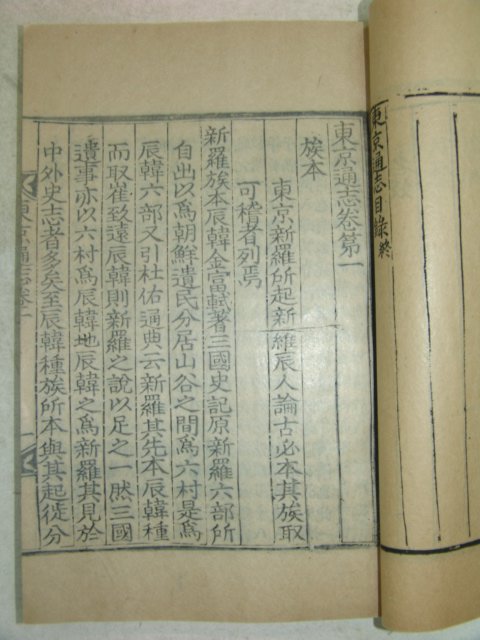 東京通志目錄終
東京通志卷第一
族本
東京新羅所起新維辰人論古必本其族取
可稽者列焉
新羅族本辰韓金富軾著三國史記原新羅六部所
自出以爲朝鮮遺民分居山谷之間爲六村是爲
辰韓六部又引杜佑通典云新羅其先本辰韓種
而取崔致遠辰韓則新羅之說以足之一然三國
遺事亦以六村爲辰韓地辰韓之爲新羅其見於
中外史志者多矣至辰韓種族所本與其起從分
東京通志卷一